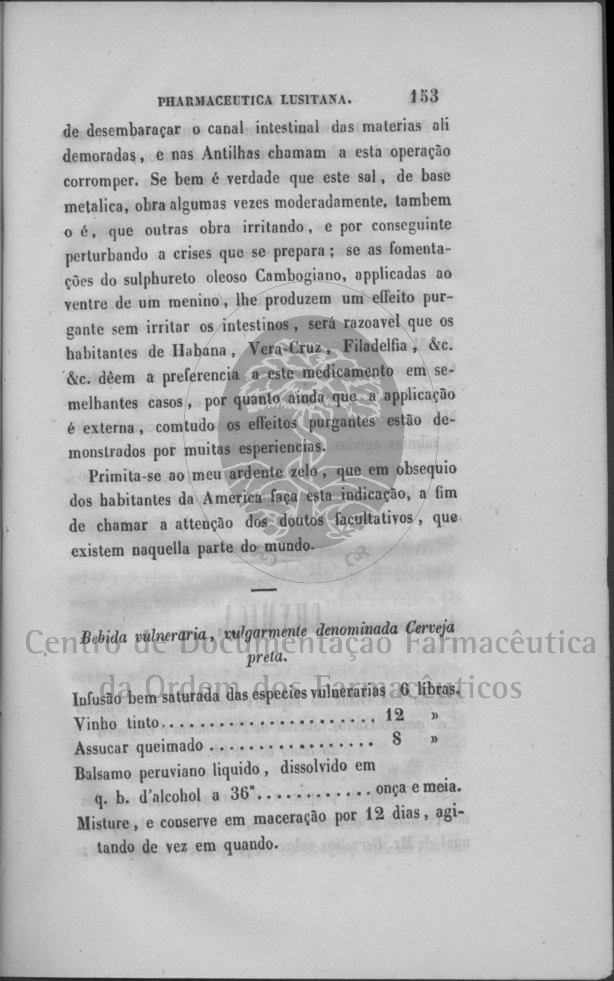 PHARMACEUTICA LUSITANA. 153
de desembaraçar o canal intestinal das materias ali
demoradas, e nas Antilhas chamam a esta operação
corromper. Se bem é verdade que este sal, de base
metalica, obra algumas vezes moderadamente, tambem
o é, que outras obra irritando, e por conseguinte
perturbando a crises que se prepara; se as fomenta-
ções do sulphureto oleoso Cambogiano, applicadas ao
ventre de um menino, lhe produzem um effeito pur-
gante sem irritar os intestinos, será razoavel que os
habitantes de Habana, Vera-Cruz, Filadelfia, &c.
&c. dêem a preferencia a este medicamento em se-
melhantes casos, por quanto ainda que a applicação
é externa, comtudo os effeitos purgantes estão de-
monstrados por muitas esperiencias.
Primita-se ao meu ardente zelo, que em obsequio
dos habitantes da America faça esta indicação, a fim
de chamar a attenção dos doutos facultativos, que
existem naquella parte do mundo.
Bebida vulneraria, vulgarmente denominada Cerveja
preta.
Centro de Documentação Farmacêutica
da Ordem dos Farmacêuticos
Infusão bem saturada das especies vulnerarias 6 libras.
Vinho tinto...................... 12 »
Assucar queimado ................. 8 »
Balsamo peruviano liquido, dissolvido em
q. b. d'alcohol a 36°............ onça e meia.
Misture, e conserve em maceração por 12 dias, agi-
tando de vez em quando.